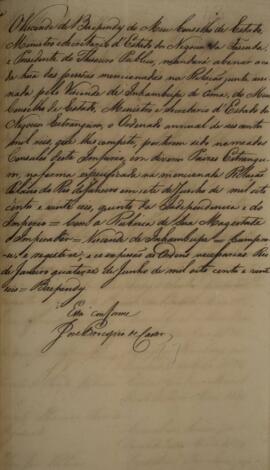 O Visconde de Baependy do Meu Conselho de Estado,
Ministro e Secretario d'Estado dos Negocios da Fazenda,
e Presidente do Thesouro Publico, mandará abonar a ca
da hum das pessoas mencionadas na Relação junta assi
nada pelo Visconde de Inhambupe de Cima, do Meu
Conselho de Estado, Ministro e Secretario d'Estado dos
Negocios Estrangeiros, o Ordenado annual de
mil reis, que lhes compete, por terem sido nomeados
Consules deste Imperio em diversos Paizes Estrangei
ros, na forma especificada na mencionada Relação
Palacio do Rio de Janeiro em sete de Junho de mil oito
cento e vinte seis, quinto da Independencia e do
Imperio = Com a Rubrica de Sua Magestade
o Imperador = Visconde de Inhambupe = Cumpra-
se e registe-se, e se expessão as Ordens necessarias Rio
de Janeiro quatorze de Junho de mil oito cento e vinte
seis = Baependy
Está conforme
José Procopio de Castro